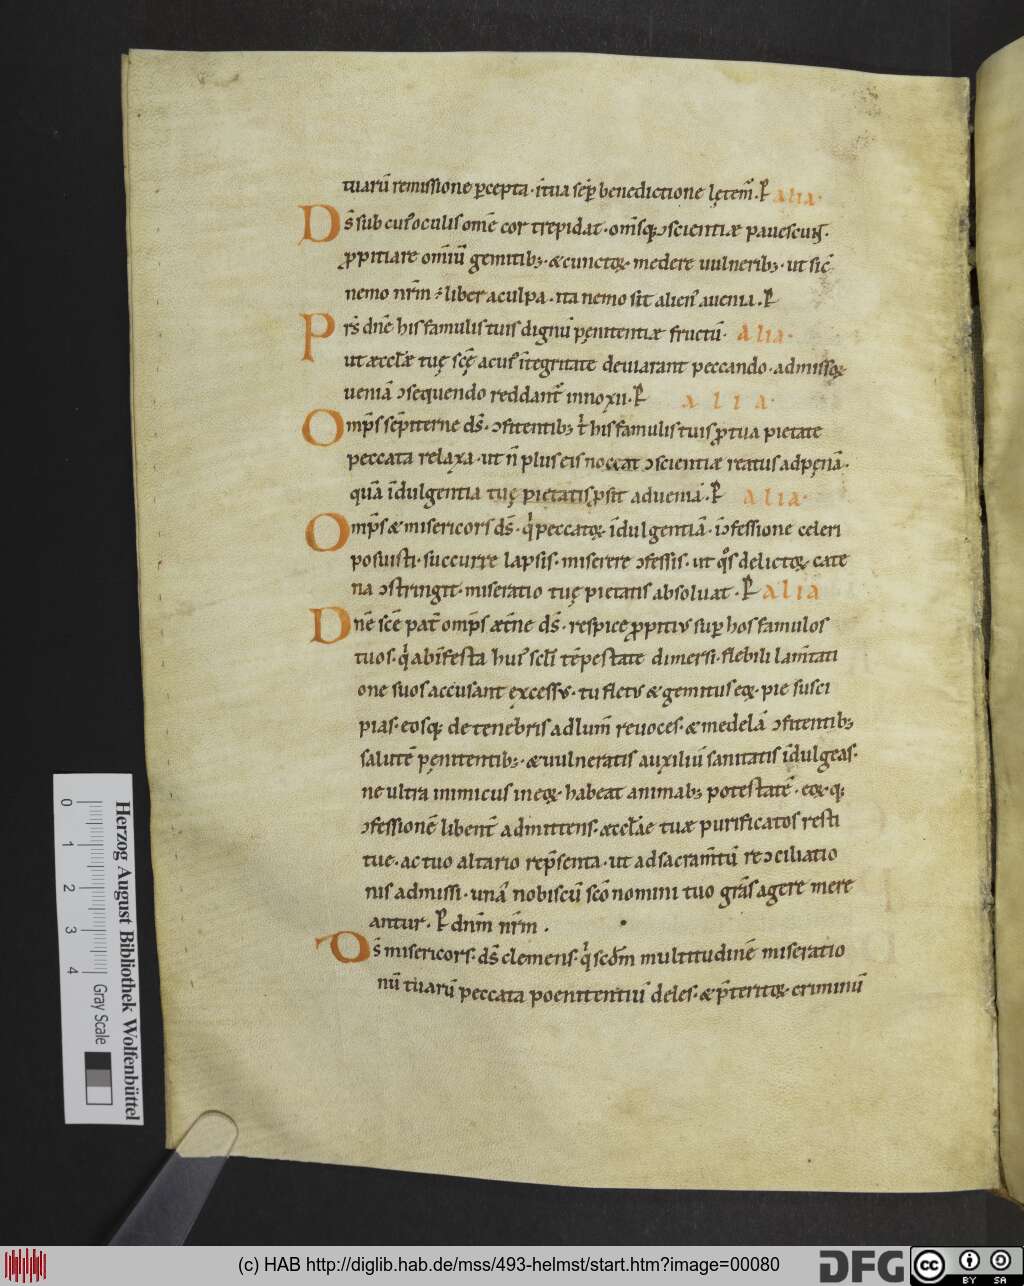 tuarū remissione pcepta · ī tua sēp benedictione lętem̄ · P̄ alia ·
Ds̄ sub cuiꝰ oculis om̄e cor trepidat · om̄sq; ɔscientiæ pauescunt ·
ꝓpitiare om̄iū gemitib; · & cunctoꝝ · medere uulnerib; · ut sic̄
nemo nr̄m ÷ liber a culpa · ita nemo sit alienꝰ a uenia · P̄
Prs̄ dn̄e his famulis tuis dignū pęnitentiæ fructū · alia ·
ut æcclǣ tuę scę̄ a cuiꝰ īntegritate deuiarant peccando · admissoꝝ
ueniā ɔsequendo reddant̄ innoxii · P̄ alia ·
Omp̄s sēpiterne ds̄ · ɔfitentib; t̄ his famulis tuis ꝓ tua pietate
peccata relaxa · ut n̄ plus eis noceat ɔscientiæ reatus ad pęnā ·
quā īdulgentia tuę pietatis ꝓsit ad ueniā · P̄ alia ·
Omp̄s & misericors ds̄ · qⁱ peccatoꝝ īdulgentiā · ī ɔfessione celeri
posuisti · succurre lapsis · miserere ɔfessis · ut qͦs delictoꝝ cate
na ɔstringit · miseratio tuę pietatis absoluat · P̄ alia
Dn̄e scē pat̄ omp̄s æt̄ne ds̄ · respice ꝓpitius sup hos famulos
tuos · qⁱ ab īfesta huiꝰ scl̄i tēpestate dimersi · flebili lam̄tati
one suos accusant excessus · tu fletus & gemitus eoꝝ · pie susci
pias · eosq; de tenebris ad lum̄ reuoces · & medelā ɔfitentib;
salutē pęnitentib; · & uulneratis auxiliū sanitatis īdulgeas ·
ne ultra inimicus in eoꝝ · habeat animab; potestatē · eoꝝ q;
ɔfessionē libent̄ admittens · æcclǣ tuæ purificatos resti
tue · ac tuo altario rep̄senta · ut ad sacram̄tū reɔciliatio
nis admissi · unā nobiscū scō nomini tuo grās agere mere
antur · P̄ dnm̄ nr̄m ·
Ds̄ misericors · ds̄ clemens · qⁱ scd̄m multitudinē miseratio
nū tuarū peccata poenitentiū deles · & p̄teritoꝝ · criminū
Herzog August Bibliothek Wolfenbüttel
0 1 2 3 4 Gray Scale
(c) HAB http://diglib.hab.de/mss/493-helmst/start.htm?image=00080
DFG
cc BY SA